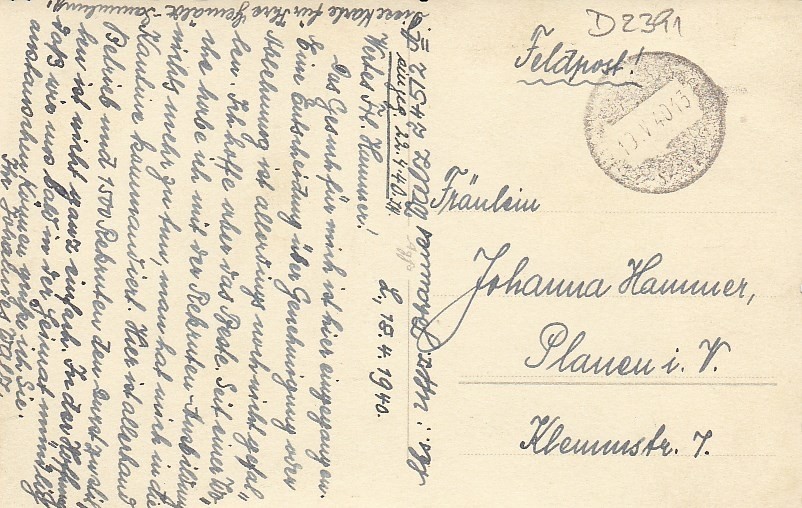 D2391
Feldpost!
13.V.40.13
Fräulein
Johanna Hammer,
Plauen i. V.
Klemmstr. 7.
L, 18.4.1940.
Wertes Frl. Hammer!
Das Gesuch für mich ist hier eingegangen.
Eine Entscheidung über Genehmigung oder
Ablehnung ist allerdings noch nicht gefal-
len. Ich hoffe aber das Beste. Seit einer Wo-
che habe ich mit der Rekruten-Ausbildung
nichts mehr zu tun, man hat mich in die
Kantine kommandiert. Hier ist allerhand
Betrieb und 1500 Rekruten den Durst zu stil-
len ist nicht ganz einfach. In der Hoffnung
daß wir uns bald in der Heimat mündlich
aussprechen können grüße ich Sie.
Ihr Johannes
Diese Karte für Ihre Gemälde-Sammlung!